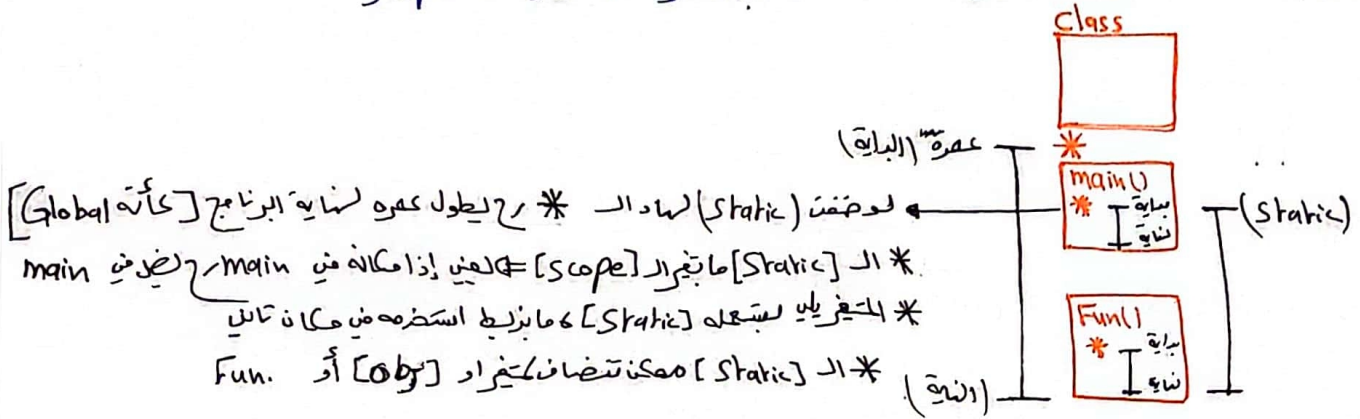 Class
عمره (البداية)
main()
بداية
نهاية
(Static)
لو ضفت (Static) لهاد الـ * رح يطول عمره لنهاية البرنامج [كأنه Global]
* الـ [Static] ما بتغير الـ [Scope] ⇐ يعني إذا مكانه في main رح يضل في main
* المتغير يلي بستعمله [Static] ما بزبط استخدمه في مكان تاني
Fun()
بداية
نهاية
* الـ [Static] ممكن تنضاف لمتغير او [obj] أو Fun.
(النهاية)